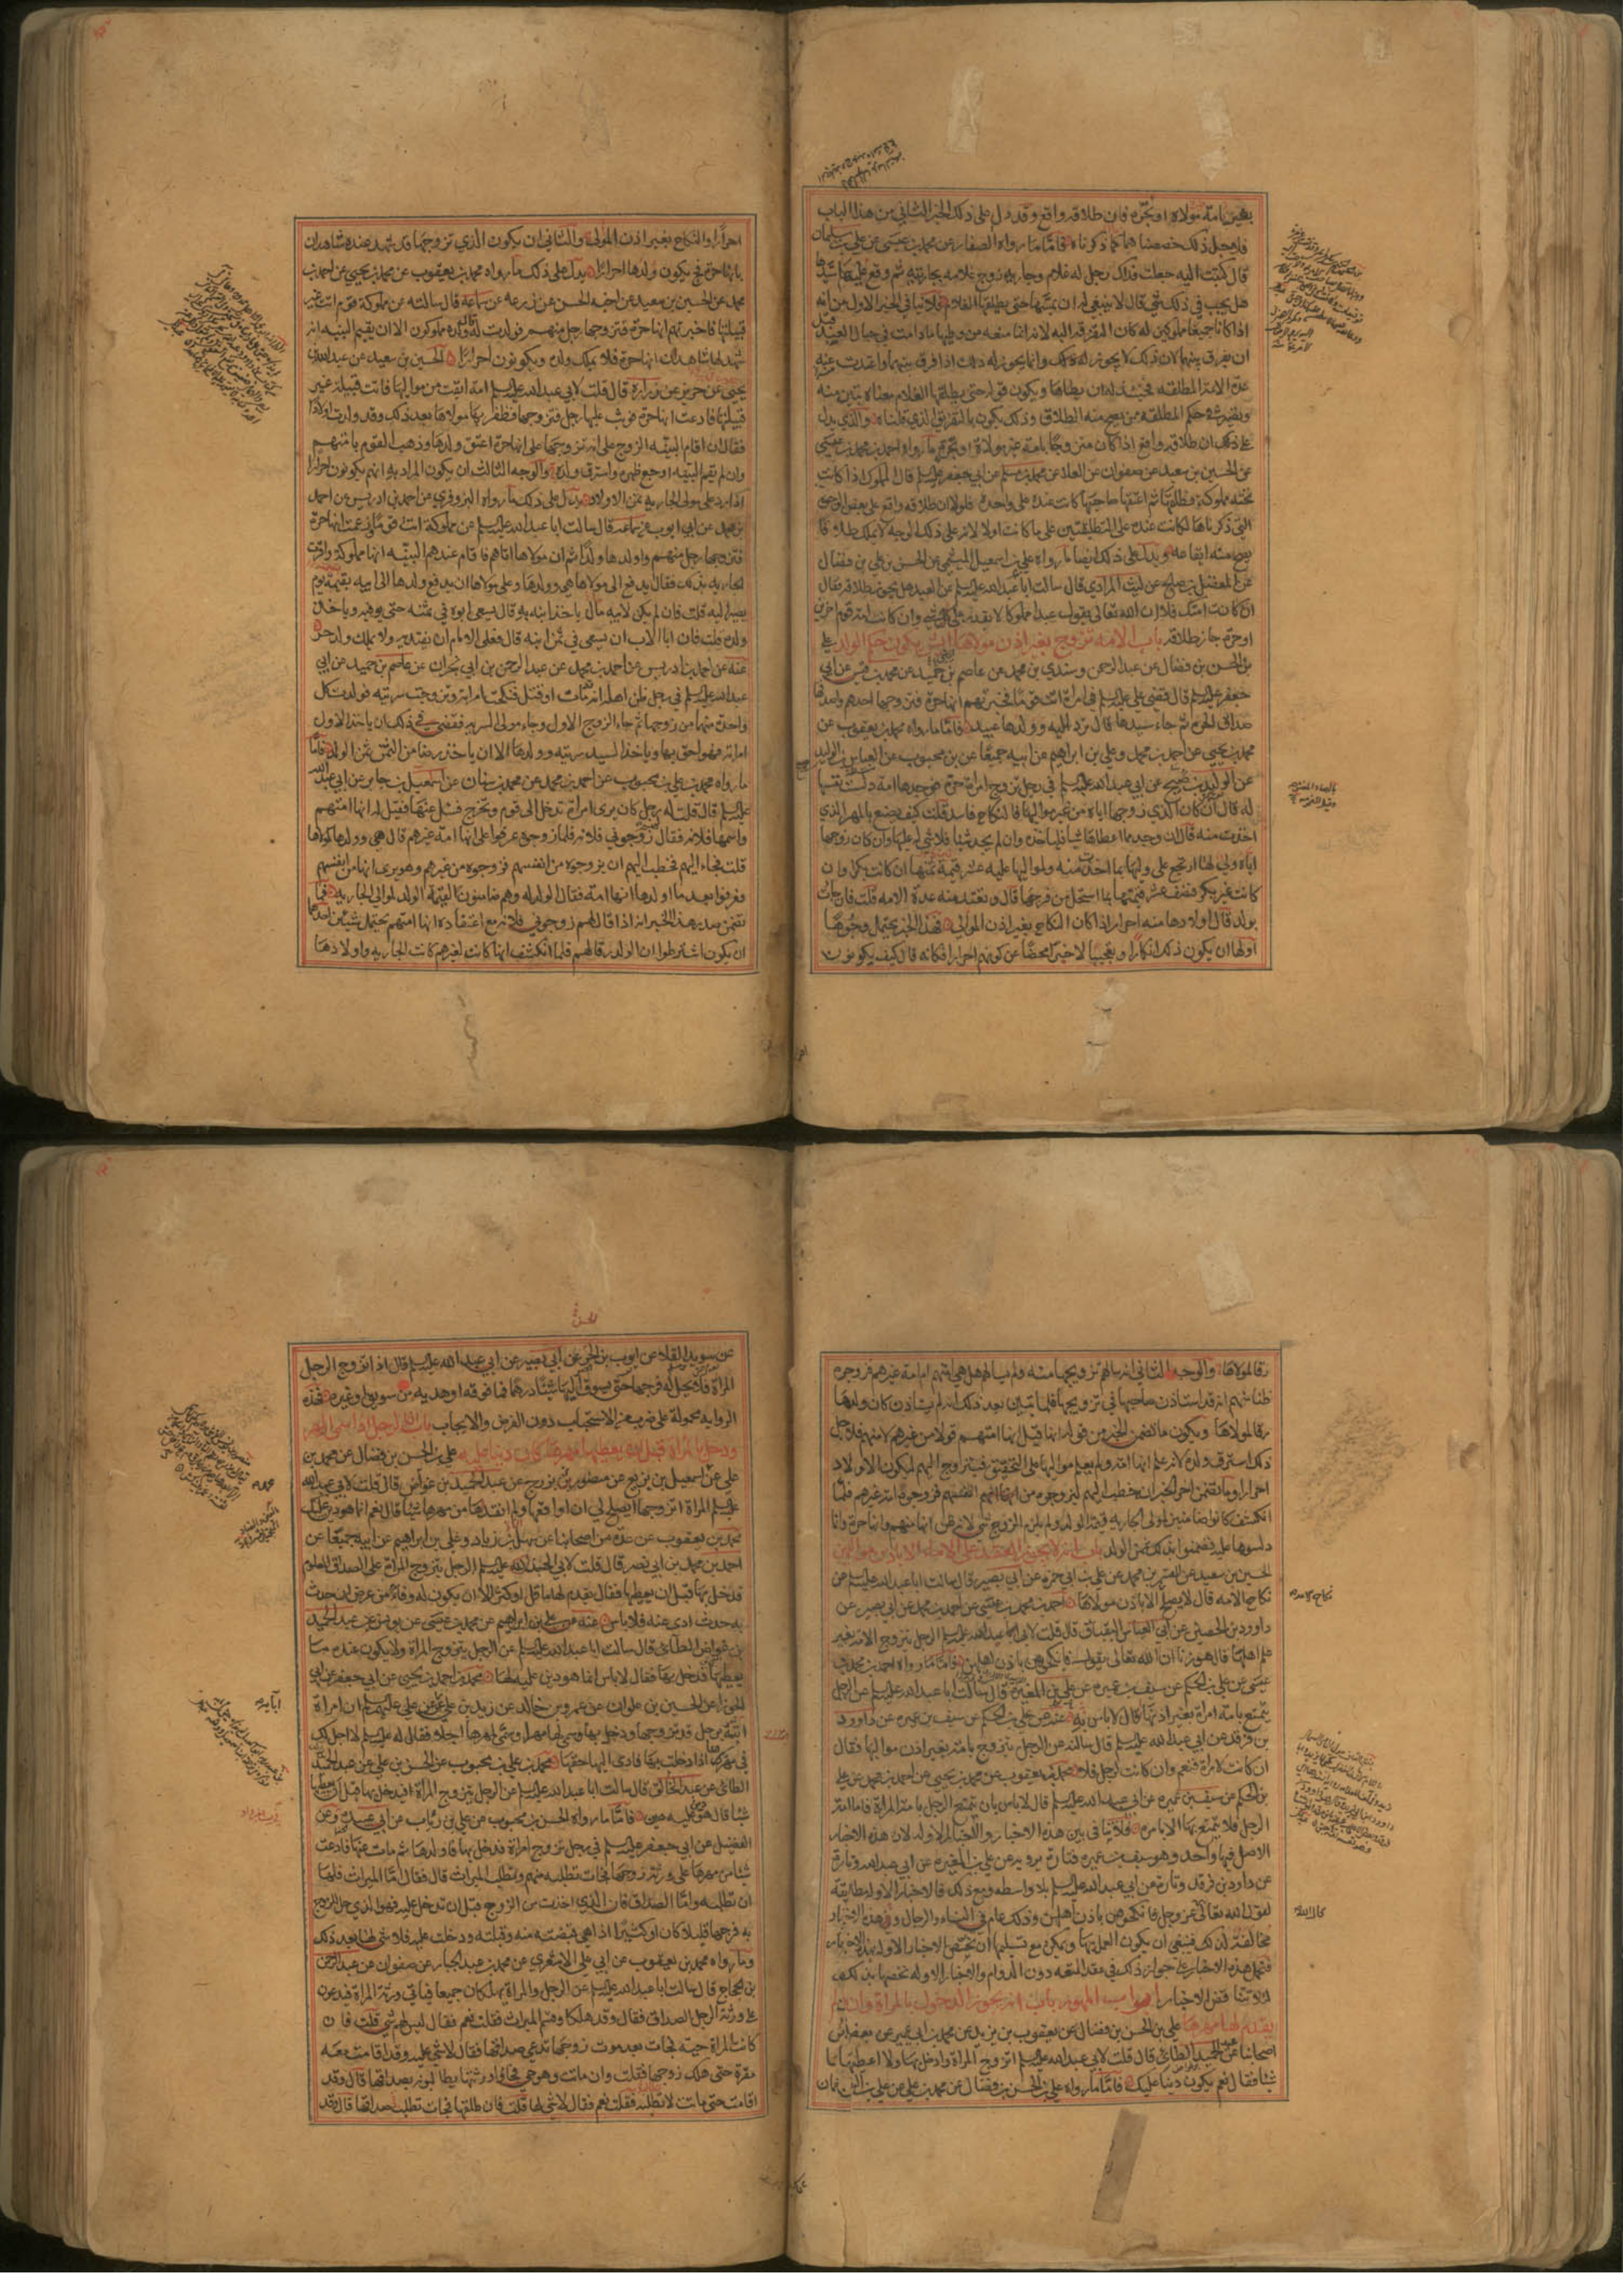 بغير امة مولاه او بحرة فان طلاقه واقع وقد دل على ذلك الخبر الثاني من هذا الباب
فلاجل ذلك خصصناهما بما ذكرناه فاما ما رواه الصفار عن محمد بن عيسى عن علي بن سليمان
قال كتبت اليه جعلت فداك رجل له غلام وجارية زوج غلامه بجاريته ثم وقع عليها سيدها
هل يجب في ذلك شي قال لا ينبغي له ان يمسها حتى يطلقها الغلام فلا ينافي الخبر الاول من انه
اذا كانا جميعا مملوكين له كان التفرقه اليه لانه انما منعه من وطيها ما دامت في حبال العبد قبل
ان يفرق بينهما لان ذلك لا يجوز له ذلك وانما يجوز له ذلك اذا فرق بينهما واعتدت منه
عدة الامة المطلقه فحينئذ له ان يطاها ويكون قوله حتى يطلقها الغلام معناه يتبين منه
ويصير في حكم المطلقه ممن يصح منه الطلاق وذلك يكون بالتفريق الذي قلناه والذي يدل
على ذلك ان طلاقه واقع اذا كان متزوجا بامة غير مولاه او بحرة ما رواه احمد بن محمد بن عيسى
عن الحسين بن سعيد عن صفوان عن العلا عن محمد بن مسلم عن ابي جعفر عليه السلم قال المملوك اذا كانت
تحته مملوكة فطلقها ثم اعتقها صاحبها كانت عنده على واحدة فلولا ان طلاقه واقع على بعض الوجوه
التي ذكرناها لكانت عنده على التطليقتين على ما كانت اولا لانه على ذلك الوجه لا يملك طلاقا
يصح منه ايقاعه ويدل على ذلك ايضا ما رواه علي بن اسمعيل الميثمي عن الحسن بن علي بن فضال
عن المفضل بن صالح عن ليث المرادي قال سالت ابا عبد الله عليه السلم عن العبد هل يجوز طلاقه فقال
ان كانت امتك فلا ان الله تعالى يقول عبدا مملوكا لا يقدر على شي وان كانت امة قوم اخرين
او حرة جاز طلاقه باب الامة تزوج بغير اذن مولاها اي شي يكون حكم الولد علي
بن الحسن بن فضال عن عبد الرحمن وسندي بن محمد عن عاصم بن حميد عن محمد بن قيس عن ابي
جعفر عليه السلم قال قضى علي عليه السلم في امراة اتت قوما فخبرتهم انها حرة فتزوجها احدهم واصدقها
صداق الحرة ثم جاء سيدها قال ترد اليه وولدها عبيد فاما ما رواه محمد بن يعقوب عن
محمد بن يحيى عن احمد بن محمد وعلي بن ابراهيم عن ابيه جميعا عن بن محبوب عن العباس بن الوليد
عن الوليد بن صبيح عن ابي عبد الله عليه السلم في رجل تزوج امراة حرة فوجدها امة دلست نفسها
له قال ان كان الذي زوجها اياه من غير مواليها فالنكاح فاسد قلت كيف يصنع بالمهر الذي
اخذت منه قال ان وجد مما اعطاها شيا فلياخذه وان لم يجد شيا فلا شي له عليها وان كان زوجها
اياه ولي لها ارتجع على وليها بما اخذت منه ولمواليها عليه عشر قيمة ثمنها ان كانت بكرا وان
كانت غير بكر فنصف عشر قيمتها بما استحل من فرجها قال وتعتد منه عدة الامه قلت فان جاءت
بولد قال اولادها منه احرار اذا كان النكاح بغير اذن المولى فهذا الخبر يحتمل وجوها
اولها ان يكون ذلك انكارا وتعجيبا لا خبرا محضا عن كونهم احرارا فكانه قال كيف يكونون
احرارا والنكاح بغير اذن المولى والثاني ان يكون الذي تزوجها قد شهد عنده شاهدان
بانها حرة فح يكون ولدها احرارا يدل على ذلك ما رواه محمد بن يعقوب عن محمد بن يحيى عن احمد بن
محمد عن الحسين بن سعيد عن اخيه الحسن عن زرعه عن سماعة قال سالته عن مملوكة قوم اتت غير
قبيلتها فاخبرتهم انها حرة فتزوجها رجل منهم فولدت له قال ولده مملوكون الا ان يقيم البينه انه
شهد لها شاهدان انها حرة فلا يملك ولده ويكونون احرارا الحسين بن سعيد عن عبد الله بن
يحيى عن حريز عن زرارة قال قلت لابي عبد الله عليه السلم امة ابقت من مواليها فاتت قبيلة غير
قبيلتها فادعت انها حرة فوثب عليها رجل فتزوجها فظفر بها مولاها بعد ذلك وقد ولدت اولادا
فقال ان اقام البينه الزوج على انه تزوجها على انها حرة اعتق ولدها وذهب القوم بامتهم
وان لم يقم البينه اوجع ظهره واسترق ولده والوجه الثالث ان يكون المراد به انهم يكونون احرارا
اذا رد على مولى الجاريه ثمن الاولاد يدل على ذلك ما رواه البزوفري عن احمد بن ادريس عن احمد
بن محمد عن ابي ايوب عن سماعة قال سالت ابا عبد الله عليه السلم عن مملوكة اتت قوما وزعمت انها حرة
فتزوجها رجل منهم واولدها ولدا ثم ان مولاها اتاهم فاقام عندهم البينه انها مملوكة واقرت
الجاريه بذلك فقال يدفع الى مولاها هي وولدها وعلى مولاها ان يدفع ولدها الى ابيه بقيمته يوم
يصير اليه قلت فان لم يكن لابيه مال ياخذ ابنه به قال يسعى ابوه في ثمنه حتى يوفيه وياخذ
ولده قلت فان ابا الاب ان يسعى في ثمن ابنه قال فعلى الامام ان يفتديه ولا يملك ولد حر
عنه عن احمد بن ادريس عن احمد بن محمد عن عبد الرحمن بن ابي نجران عن عاصم بن حميد عن ابي
عبد الله عليه السلم في رجل ظن اهله انه مات او قتل فنكحت امراته وتزوجت سريته فولدت كل
واحدة منهما من زوجها ثم جاء الزوج الاول وجاء مولى السريه فقضى في ذلك ان ياخذ الاول
امراته فهو احق بها وياخذ السيد سريته وولدها الا ان ياخذ رضا من الثمن ثمن الولد فاما
ما رواه محمد بن علي بن محبوب عن احمد بن محمد عن محمد بن سنان عن اسمعيل بن جابر عن ابي عبد الله
عليه السلم قال قلت له رجل كان يرى امراة تدخل الى قوم وتخرج فسئل عنها فقيل له انها امتهم
واسمها فلانه فقال لهم زوجوني فلانه فلما زوجوه عرفوا على انها امة غيرهم قال هي وولدها لمولاها
قلت فجاء اليهم فخطب اليهم ان يزوجوه من انفسهم فزوجوه من غيرهم وهو يرى انها من انفسهم
فعرفوا بعد ما اولدها انها امة فقال الولد له وهم ضامنون لقيمة الولد لمولى الجاريه فما
تضمن صدر هذا الخبر انه اذا قال لهم زوجوني فلانه مع اعتقاده انها امتهم يحتمل شيئين احدهما
ان يكون اشترطوا ان الولد رقا لهم فلما انكشف انها كانت لغيرهم كانت الجاريه واولادها
رقا لمولاها والوجه الثاني انه سالهم تزويجها منه ولم يسالهم هل هي امتهم ام امة غيرهم فزوجوه
ظنا منهم انه قد استاذن صاحبها في تزويجها فلما تبين بعد ذلك انه لم يستاذن كان ولدها
رقا لمولاها ويكون ما تضمن الخبر من قوله انها قيل انها امتهم قولا من غيرهم لا منهم فلاجل
ذلك استرق ولده لانه علم انها امة ولم يعلم مواليها على التحقيق فيتزوج اليهم ليكون الاولاد
احرارا وما تضمن اخر الخبر انه خطب اليهم ليزوجوه من انفسهم فزوجوه امة غيرهم فلما
انكشف كانوا ضامنين لمولى الجاريه قيمة الولد ولم يلزم الزوج شي لانه ظن انها منهم وانها حرة وانما
دلسوها عليه فضمنوا بذلك ثمن الولد باب انه لا يجوز العقد على الاماء الا باذن مواليهن
الحسين بن سعيد عن القسم بن محمد عن علي بن ابي حمزه عن ابي بصير قال سالت ابا عبد الله عليه السلم عن
نكاح الامه قال لا يصلح الا باذن مولاها احمد بن محمد بن عيسى عن احمد بن محمد بن ابي نصر عن
داوود بن الحصين عن ابي العباس البقباق قال قلت لابي عبد الله عليه السلم الرجل يتزوج الامة بغير
علم اهلها قال هو زنا ان الله تعالى يقول فانكحوهن باذن اهلهن فاما ما رواه احمد بن محمد بن
عيسى عن علي بن الحكم عن سيف بن عميره عن علي بن المغيره قال سالت ابا عبد الله عليه السلم عن الرجل
يتمتع بامة امراة بغير اذنها قال لا باس به عنه عن علي بن الحكم عن سيف بن عميره عن داوود
بن فرقد عن ابي عبد الله عليه السلم قال سالته عن الرجل يتزوج بامة بغير اذن مواليها فقال
ان كانت لامراة فنعم وان كانت لرجل فلا محمد بن يعقوب عن محمد بن يحيى عن احمد بن محمد عن علي
بن الحكم عن سيف بن عميره عن ابي عبد الله عليه السلم قال لا باس بان يتمتع الرجل بامة المراة فاما امة
الرجل فلا يتمتع بها الا بامره فلا ينافي بين هذه الاخبار والاخبار الاوله لان هذه الاخبار
الاصل فيها واحد وهو سيف بن عميره فتارة يرويه عن علي بن المغيره عن ابي عبد الله وتارة
عن داود بن فرقد وتارة عن ابي عبد الله عليه السلم بلا واسطه ومع ذلك فالاخبار الاوله مطابقة
لقول الله تعالى عز وجل فانكحوهن باذن اهلهن وذلك عام في النساء والرجال وهذه الاخبار
مخالفة لذلك فينبغي ان يكون العمل بها ويمكن مع تسليمها ان يخص الاخبار الاوله بهذه الاخبار
فنحمل هذه الاخبار على جواز ذلك في عقد المتعه دون الدوام والاخبار الاوله نخصها بذلك
لئلا تتناقض الاخبار ابواب المهور باب انه يجوز الدخول بالمراة وان لم
يقدم لها مهرها علي بن الحسن بن فضال عن يعقوب بن يزيد عن محمد بن ابي عمير عن بعض
اصحابنا عن عبد الحميد الطائي قال قلت لابي عبد الله عليه السلم اتزوج المراة وادخل بها ولا اعطيها
شيا فقال نعم يكون دينا عليك فاما ما رواه علي بن الحسن بن فضال عن محمد بن علي عن علي بن النعمان
عن سويد القلا عن ايوب بن الحر عن ابي بصير عن ابي عبد الله عليه السلم قال اذا تزوج الرجل
المراة فلا يحل له فرجها حتى يسوق اليها شيئا درهما فما فوقه او هدية من سويق او غيره فهذه
الروايه محمولة على ضرب من الاستحباب دون الفرض والايجاب باب ان الرجل اذا سمى المهر
ودخل بالمراة قبل ان يعطيها مهرها كان دينا عليه علي بن الحسن بن فضال عن محمد بن
علي عن اسمعيل بن بزيع عن منصور بن بزرج عن عبد الحميد بن عواض قال قلت لابي عبد الله
عليه السلم المراة اتزوجها ايصلح لي ان اواقعها ولم انقدها من مهرها شيئا قال نعم انما هو دين عليك
محمد بن يعقوب عن عدة من اصحابنا عن سهل بن زياد وعلي بن ابراهيم عن ابيه جميعا عن
احمد بن محمد بن ابي نصر قال قلت لابي الحسن عليه السلم الرجل يتزوج المراة على الصداق المعلوم
فدخل بها قبل ان يعطيها فقال يقدم لها ما قل او كثر الا ان يكون له وفاء من عرض ان حدث
به حدث ادى عنه فلا باس عنه عن علي بن ابراهيم عن محمد بن عيسى عن يونس عن عبد الحميد
بن عواض الطائي قال سالت ابا عبد الله عليه السلم عن الرجل يتزوج المراة ولا يكون عنده ما
يعطيها فدخل بها فقال لا باس انما هو دين عليه لها محمد بن احمد بن يحيى عن ابي جعفر عن ابي
الجوزا عن الحسين بن علوان عن عمرو بن خالد عن زيد بن علي عن علي عليه السلم ان امراة
اتته برجل قد تزوجها ودخل بها وسمى لها مهرا وسمى لمهرها اجلا فقال له عليه السلم لا اجل لك
في مهرها اذا دخلت بها فادى اليها حقها محمد بن علي بن محبوب عن الحسن بن علي عن عبد الحميد
الطائي عن عبد الخالق قال سالت ابا عبد الله عليه السلم عن الرجل يتزوج المراة فيدخل بها قبل ان يعطيها
شيئا قال هو دين عليه فاما ما رواه الحسن بن محبوب عن علي بن رئاب عن ابي عبيده وعن
الفضيل عن ابي جعفر عليه السلم في رجل تزوج امراة فدخل بها فاولدها ثم مات عنها فادعت
شيئا من مهرها على ورثة زوجها فجات تطلبه منهم وتطلب الميراث قال فقال اما الميراث فلها
ان تطلبه واما الصداق فان الذي اخذت من الزوج قبل ان تدخل عليه فهو الذي حل للزوج
به فرجها قليلا كان او كثيرا اذا هي قبضته منه وقبلته ودخلت عليه فلا شي لها بعد ذلك
وما رواه محمد بن يعقوب عن ابي علي الاشعري عن محمد بن عبد الجبار عن صفوان عن عبد الرحمن
بن الحجاج قال سالت ابا عبد الله عليه السلم عن الرجل والمراة يهلكان جميعا فياتي ورثة المراة فيدعون
على ورثة الرجل الصداق فقال وقد هلكا وقسم الميراث فقلت نعم فقال ليس لهم شي قلت فان
كانت المراة حية فجات بعد موت زوجها تدعي صداقها فقال لا شي عليه وقد اقامت معه
مقرة حتى هلك زوجها فقلت وان ماتت وهو حي فجاء ورثتها يطالبونه بصداقها قال وقد
اقامت حتى ماتت لا تطلبه فقلت نعم فقال لا شي لها قلت فان طلقها فجات تطلب صداقها قال وقد